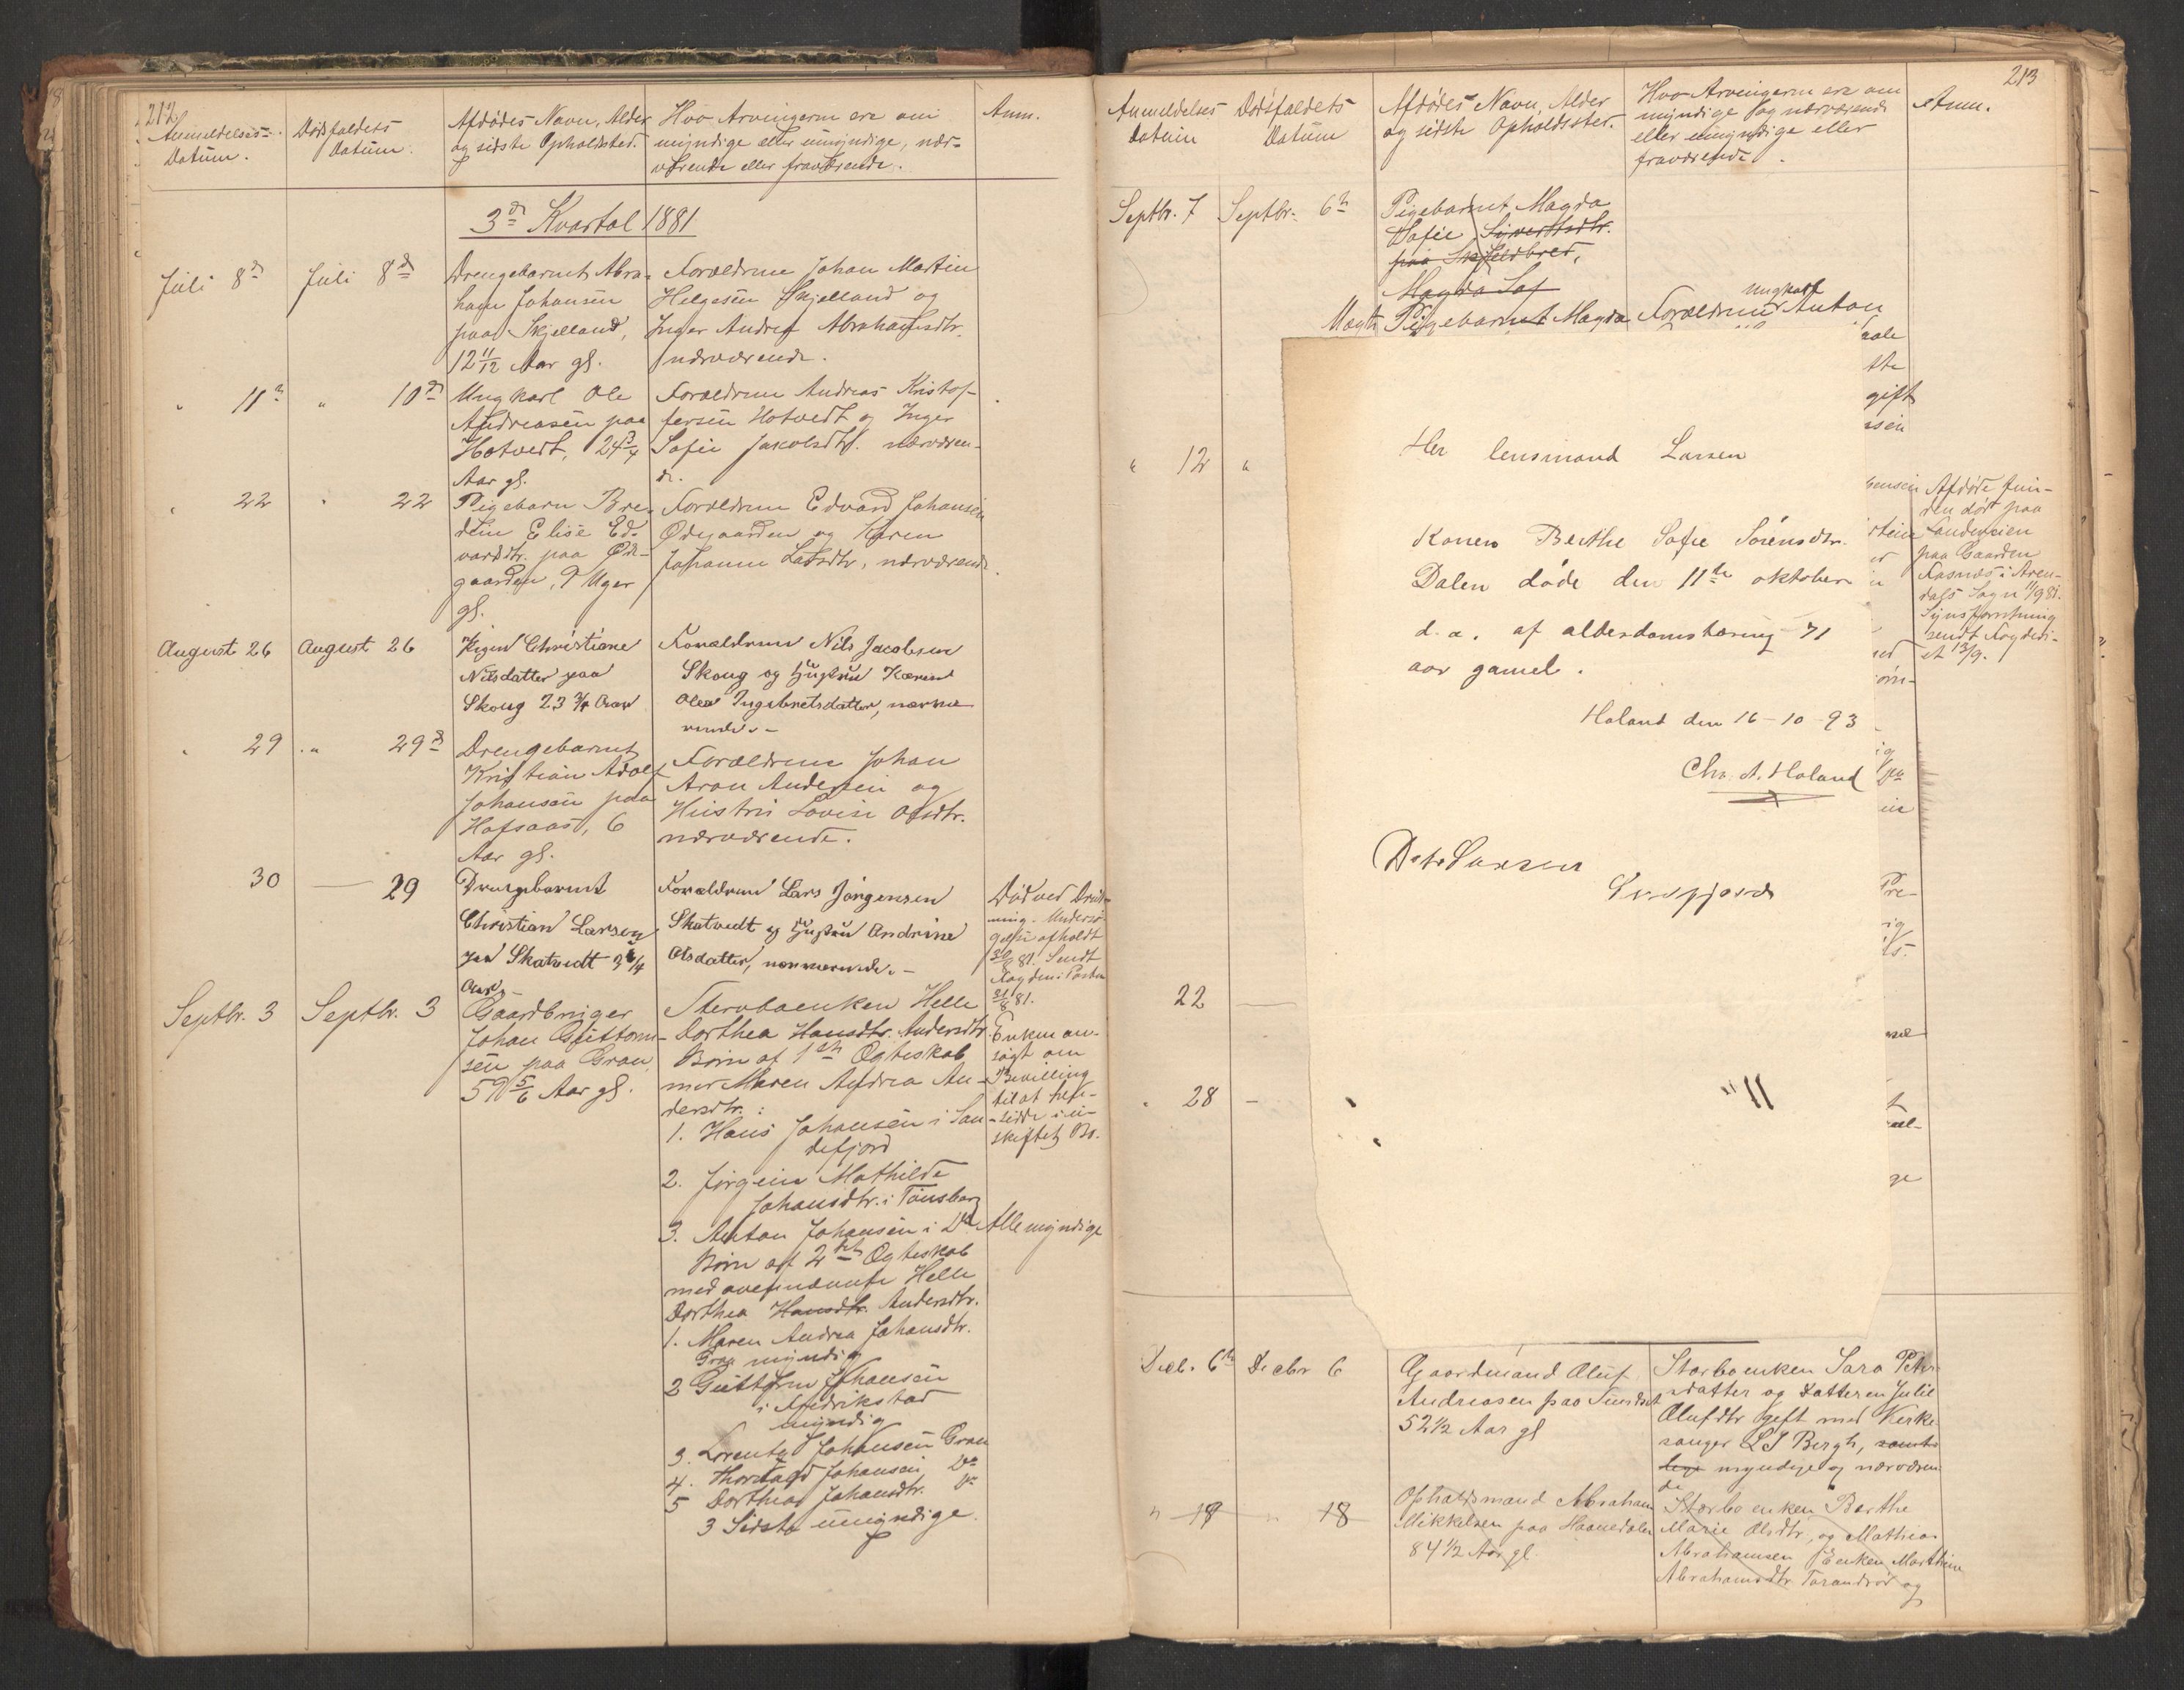 212
Anmeldelses-
Datum.
Dødsfaldets
Datum.
Afdødes Navn, Alder
og sidste Opholdssted.
Hvo Arvingerne ere om
myndige eller umyndige, nær-
værende eller fraværende.
Anm.
3die Kvartal 1881
Juli 8de
Juli 8de
Drengebarnet Abra-
ham Johansen
paa Skjelland,
12 11/12 Aar gl.
Forældrene Johan Martin
Helgesen Skjelland og
Inger Andrea Abrahamsdtr.
nærværende.
" 11te
" 10de
Ungkarl Ole
Andreasen paa
Hotvedt, 24 3/4
Aar gl.
Forældrene Andreas Kristof-
fersen Hotvedt og Inger
Sofie Jakobsdtr. nærværen-
de.
" 22
" 22
Pigebarn Bre-
dine Elise Ed-
vardsdtr. paa Øde-
gaarden, 9 Uger
gl.
Forældrene Edvard Johansen
Ødegaarden og Karen
Johanne Larsdtr, nærværende.
August 26
August 26
Pigen Christiane
Nilsdatter paa
Skoug 23 3/4 Aar
Forældrene Nils Jacobsen
Skoug og Hustru Karen
Olea Ingebretsdatter, nærvæ
rende.-
" 29
" 29de
Drengebarnet
Kristian Adolf
Johansen paa
Hafsaas, 6
Aar gl.
Forældrene Johan
Aron Andersen og
Hustru Lovise Olsdtr.
nærværende.
30
29
Drengebarnet
Christian Larsen
paa Skatvedt 3 1/4
Aar,-
Forældrene Lars Jörgensen
Skatvedt og Hustru Andrine
Olsdatter, nærværende.-
Død ved Druk-
ning. Undersø-
gelse afholdt
30/8 81. Sendt
Fogden i Posten
31/8 81.
Septbr. 3
Septbr. 3
Gaardbruger
Johan Guttorm-
sen paa Gran,
59 5/6 Aar gl.
Stervboenken Helle
Dorthea Hansdtr. Andersdtr.
Børn af 1ste Ægteskab
med Maren Andrea An-
dersdtr.:
1. Hans Johansen i San-
defjord
2. Jørgine Mathilde
Johansdtr. i Tønsberg
3. Anton Johansen i Do
Børn af 2det Ægteskab
med ovennævnte Helle
Dorthea Hansdtr. Andersdtr.
1. Maren Andrea Johansdtr.
Gran myndig
2 Guttorm Johansen
i Fredrikstad
myndig
3. Lorentz Johansen Gran
4. Thorvald Johansen Do
5 Dorthea Johansdtr. Do
3 Sidste umyndige.
Enken an-
søgt om
Bevilling
til at hen-
sidde i u-
skiftet Bo.
Alle myndige
213
Anmeldelses
Datum
Dødsfaldets
Datum
Afdødes Navn, Alder
og sidste Opholdssted.
Hvo Arvingerne ere om
myndige og nærværende
eller umyndige eller
fraværende.
Anm.
Septbr. 7
Septbr. 6te
Pigebarnet Magda
Sofie Sivertsdtr.
paa Skjeldbred,
Magda Sof
Pigebarnet Magda
Forældrene Ungkarl Anton
" 12
"
Her lensmand Larsen
Konen Berthe Sofie Sörensdtr.
Dalen döde den 11te oktober
d.a. af alderdomstæring 71
aar gamel.
Holand den 16-10-93
Chr. A. Holand
gift
Afdøde fun-
den død paa
Landeveien
paa Gaarden
Fasnes i Aren-
dals Sogn 11/9 81.
Synsforretning
sendt Fogderi-
et 13/9.
22
" 28
Decb. 6te
Decbr 6
Gaardmand Oluf
Andreasen paa Sundset
52 1/2 Aar gl
Starboenken Sara Peter-
sdatter og Datteren Julie
Olufdtr gift med Kirke-
sanger L J Bergh, samt-
lige myndige og nærværen
de
" 18
" 18
Opholdsmand Abraham
Mikkelsen paa Haanedalen
84 1/2 Aar gl.
Starboenken Berthe
Marie Olsdtr, og Mathias
Abrahamsen Enken Marthine
Abrahamsdtr Tarandrød og